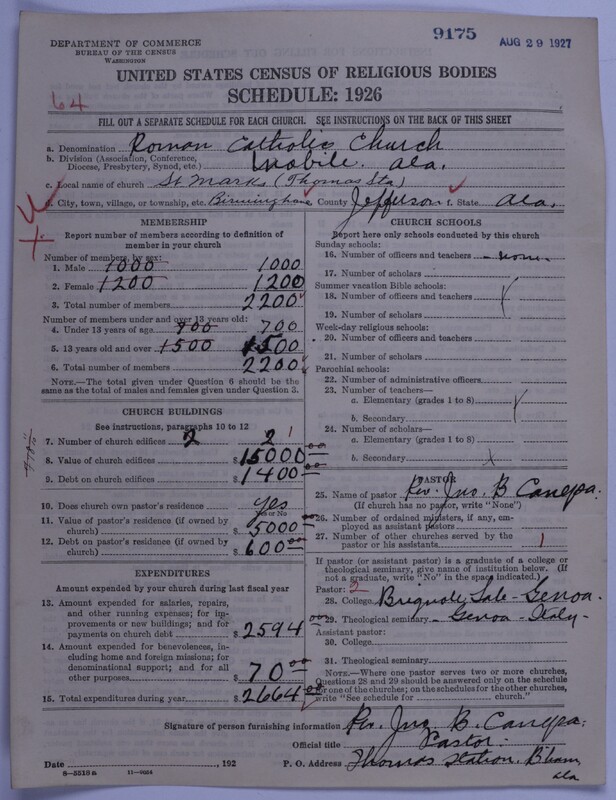 9175
AUG 29 1927
DEPARTMENT OF COMMERCE
BUREAU OF THE CENSUS
WASHINGTON
UNITED STATES CENSUS OF RELIGIOUS BODIES
SCHEDULE: 1926
64
FILL OUT A SEPARATE SCHEDULE FOR EACH CHURCH. SEE INSTRUCTIONS ON THE BACK OF THIS SHEET
a. Denomination Roman Catholic Church
b. Division (Association, Conference,
Diocese, Presbytery, Synod, etc.) Mobile. Ala.
c. Local name of church St Marks (Thomas Sta)
d. City, town, village, or township, etc. Birmingham e. County Jefferson f. State Ala.
MEMBERSHIP
Report number of members according to definition of
member in your church
Number of members, by sex:
1. Male 1000 1000
2. Female 1200 1200
3. Total number of members 2200
Number of members under and over 13 years old:
4. Under 13 years of age 700 700
5. 13 years old and over 1500 1500
6. Total number of members 2200
NOTE.—The total given under Question 6 should be the
same as the total of males and females given under Question 3.
CHURCH BUILDINGS
See instructions, paragraphs 10 to 12
7. Number of church edifices 2 2 1
8. Value of church edifices $ 15000 00
9. Debt on church edifices $ 1400 00
10. Does church own pastor's residence yes
Yes or No
11. Value of pastor's residence (if owned by
church) $ 5000 00
12. Debt on pastor's residence (if owned by
church) $ 600 00
EXPENDITURES
Amount expended by your church during last fiscal year
13. Amount expended for salaries, repairs,
and other running expenses; for im-
provements or new buildings; and for
payments on church debt $ 2594 00
14. Amount expended for benevolences, in-
cluding home and foreign missions; for
denominational support; and for all
other purposes $ 70 00
15. Total expenditures during year $ 2664 00
CHURCH SCHOOLS
Report here only schools conducted by this church
Sunday schools:
16. Number of officers and teachers none
17. Number of scholars
Summer vacation Bible schools:
18. Number of officers and teachers
19. Number of scholars
Week-day religious schools:
20. Number of officers and teachers
21. Number of scholars
Parochial schools:
22. Number of administrative officers
23. Number of teachers—
a. Elementary (grades 1 to 8)
b. Secondary
24. Number of scholars—
a. Elementary (grades 1 to 8)
b. Secondary x
PASTOR
25. Name of pastor Rev. Jno. B. Canepa.
(If church has no pastor, write "None")
26. Number of ordained ministers, if any, em-
ployed as assistant pastors
27. Number of other churches served by the
pastor or his assistants 1
If pastor (or assistant pastor) is a graduate of a college or
theological seminary, give name of institution below. (If
not a graduate, write "No" in the space indicated.)
Pastor: 2
28. College Brignole Sale - Genoa.
29. Theological seminary - Genoa - Italy -
Assistant pastor:
30. College
31. Theological seminary
NOTE.—Where one pastor serves two or more churches,
Questions 28 and 29 should be answered only on the schedule
for one of the churches; on schedules for the other churches,
write "See schedule for church."
Signature of person furnishing information Rev. Jno. B. Canepa.
Official title Pastor.
Date , 192 P. O. Address Thomas Station. B'ham,
Ala
8—5518 a 11—9054